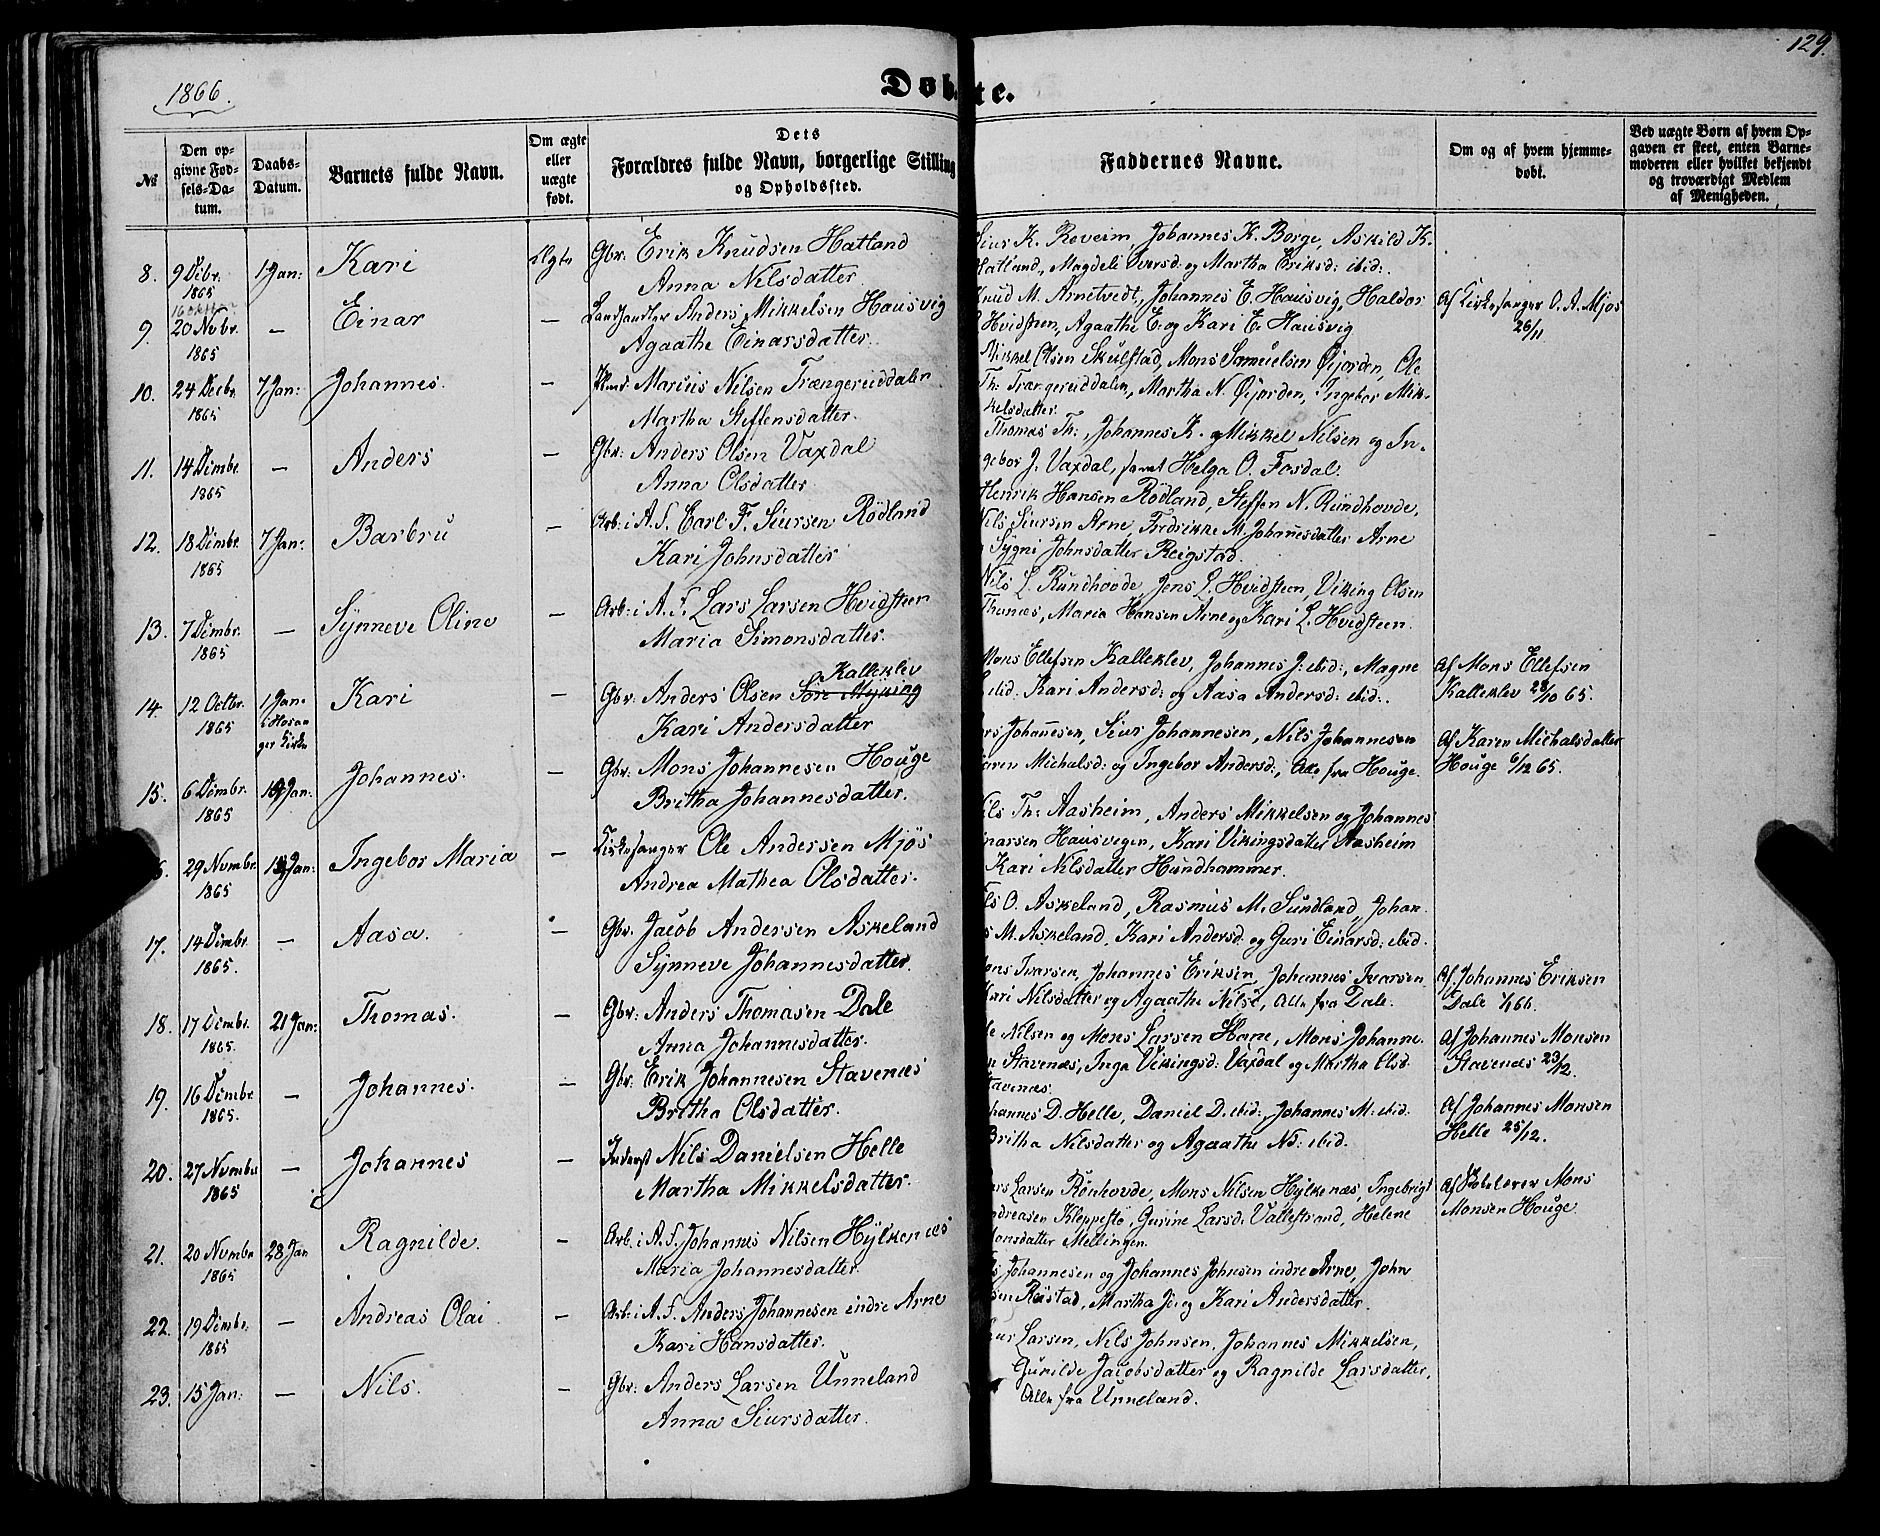 129.
1866.
Døbte.
№
Den opgivne Fødsels-Datum.
Daabs-Datum.
Barnets fulde Navn.
Om ægte eller uægte født.
Dets Forældres fulde Navn, borgerlige Stilling og Opholdssted.
Faddernes Navne.
Om og af hvem hjemmedøbt.
Ved uægte Børn af hvem Opgaven er skeet, enten Barnemoderen eller hvilket bekjendt og troværdigt Medlem af Menigheden.
8. 9 Decbr. 1865 1 Jan: Kari Ægte Gbr: Erik Knudsen Hatland
Anna Nilsdatter
Siur K. Roveim, Johannes K. Borge, Askild K.
Hatland, Magdeli Iversd: og Martha Eriksd: ibid:.
9. 20 Novbr. 1865 — Einar — Landhandler Anders Mikkelsen Hausvig
Agaathe Einarsdatter.
Knud M. Arnetvedt, Johannes E. Hausvig, Haldor
Hvidsteen, Agaathe E. og Kari E. Hausvig
Af Kirkesanger O. A. Mjøs
26/11
10. 24 Decbr. 1865 7 Jan: Johannes. — Marcus Nilsen Trængeruddalen
Martha Steffensdatter.
Mikkel Olsen Skulstad, Mons Samuelsen Øijorden, Ole
Th: Trængeruddalen, Martha N. Øijorden, Ingebor Mik-
kelsdatter.
11. 14 Dcmbr 1865 — Anders — Gbr: Anders Olsen Vaxdal
Anna Olsdatter
Thomas Th:, Johannes K. og Mikkel Nilsen og In-
gebor J. Vaxdal, samt Helga O. Fosdal.
12. 18 Dcmbr. 1865 7 Jan: Barbru — Arb: i A. F. Carl F. Siursen Rødland
Kari Johnsdatter
Henrik Hansen Rødland, Steffen N. Rundhovde,
Nils Siursen Arne, Fredrikke M. Johannesdatter Arne
Sygni Johnsdatter Reigstad.
13. 7 Dcmbr. 1865 — Synneve Oline — Arb: i A. F. Lars Larsen Hvidsteen
Maria Simonsdatter.
Nils L. Rundhovde, Jens L. Hvidsteen, Viking Olsen
Thunæs, Maria Hansen Arne og Kari L. Hvidsteen.
14. 12 Octbr. 1865 1 Jan. i Hosanger Kirke Kari — Gbr. Anders Olsen Søre Myking Kalleklev
Kari Andersdatter
Mons Ellefsen Kalleklev, Johannes J. ibid:, Magne
ibid. Kari Andersd: og Aasa Andersd: ibid:.
Af Mons Ellefsen
Kalleklev 22/10 65.
15. 6 Dcmbr. 1865 Jan: Johannes. — Gbr: Mons Johannesen Houge
Britha Johannesdatter.
Johannesen, Siur Johannesen, Nils Johannesen
Karen Michalsd: og Ingebor Andersd:, Alle fra Houge.
Af Karen Michalsdatter
Houge 6/12 65.
29 Novmbr. 1865 Jan: Ingebor Maria — Kirkesanger Ole Andersen Mjøs
Andrea Mathea Olsdatter.
Nils Th: Aasheim, Anders Mikkelsen og Johannes
Einarsen Hausvegen, Kari Vikingsdatter Aasheim
Kari Nilsdatter Hundhammer.
17. 14 Dcmbr. 1865. — Aasa. — Gbr. Jacob Andersen Askeland
Synneve Johannesdatter.
O. Askeland, Rasmus M. Sundland, Johan-
M. Askeland, Kari Andersd. og Guri Einarsd: ibid.
18. 17 Dcmbr. 1865. 21 Jan: Thomas. — Gbr: Anders Thomasen Dale
Anna Johannesdatter.
Mons Ivarsen, Johannes Eriksen, Johannes Ivarsen
Kari Nilsdatter og Agaathe Nilsd, Alle fra Dale.
Af Johannes Eriksen
Dale 1/1 66.
19. 16 Dcmbr 1865. — Johannes. — Gbr: Erik Johannesen Stavenæs
Britha Olsdatter.
Ole Nilsen og Mons Larsen Hane, Mons Johanne-
sen Stavenæs, Inga Vikingsd: Vaxdal og Martha Olsd.
Stavenæs.
Af Johannes Monsen
Stavenæs 23/12.
20. 27 Novmbr 1865 — Johannes — Inderst Nils Danielsen Helle
Martha Mikkelsdatter.
Johannes D. Helle, Daniel D. ibid:, Johannes M: ibid.
Britha Nilsdatter og Agaathe Nd: ibid.
Af Johannes Monsen
Helle 25/12.
21. 20 Novmbr 1865 28 Jan Ragnilde. — Arb. i A. F. Johannes Nilsen Hylkenæs
Maria Johannesdatter
Lars Larsen Rønhovde, Mons Nilsen Hylkenæs, Ingebrigt
Andreasen Kleppestø, Gurine Larsd. Vallestrand, Helene
Monsdatter Mellingen.
Af Skolelærer Mons
Monsen Houge
22. 19 Dcmbr. 1865 — Andreas Olai — Arb: i A. F. Anders Johannesen indre Arne
Kari Hansdatter.
Johannesen og Johannes Johnsen indre Arne, John
Reistad, Martha J. og Kari Andersdatter.
23. 15 Jan: — Nils. — Gbr: Anders Larsen Unneland
Anna Siursdatter.
Siur Larsen, Nils Johnsen, Johannes Mikkelsen,
Gunilde Jacobsdatter og Ragnilde Larsdatter,
Alle fra Unneland.